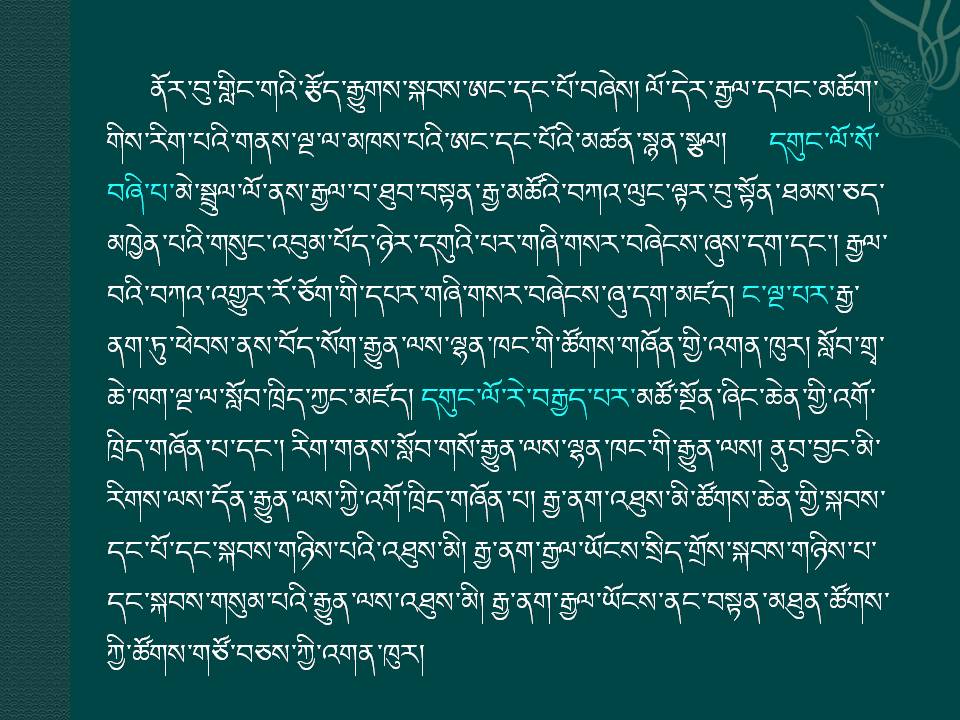 ནོར་བུ་གླིང་གའི་རྩོད་རྒྱུགས་སྐབས་ཨང་དང་པོ་བཞེས། ལོ་དེར་རྒྱལ་དབང་མཆོག་
གིས་རིག་པའི་གནས་ལྔ་ལ་མཁས་པའི་ཨང་དང་པོའི་མཚན་སྙན་སྩལ། དགུང་ལོ་སོ་
བཞི་པ་མེ་སྦྲུལ་ལོ་ནས་རྒྱལ་བ་ཐུབ་བསྟན་རྒྱ་མཚོའི་བཀའ་ལུང་ལྟར་བུ་སྟོན་ཐམས་ཅད་
མཁྱེན་པའི་གསུང་འབུམ་པོད་ཉེར་དགུའི་པར་གཞི་གསར་བཞེངས་ཞུས་དག་དང་། རྒྱལ་
བའི་བཀའ་འགྱུར་རོ་ཅོག་གི་དཔར་གཞི་གསར་བཞེངས་ཞུ་དག་མཛད། ང་ལྔ་པར་རྒྱ་
ནག་ཏུ་ཕེབས་ནས་བོད་སོག་རྒྱུན་ལས་ལྷན་ཁང་གི་ཚོགས་གཞོན་གྱི་འགན་ཁུར། སློབ་གྲྭ་
ཆེ་ཁག་ལྔ་ལ་སློབ་ཁྲིད་ཀྱང་མཛད། དགུང་ལོ་རེ་བརྒྱད་པར་མཚོ་སྔོན་ཞིང་ཆེན་གྱི་འགོ་
ཁྲིད་གཞོན་པ་དང་། རིག་གནས་སློབ་གསོ་རྒྱུན་ལས་ལྷན་ཁང་གི་རྒྱུན་ལས། ནུབ་བྱང་མི་
རིགས་ལས་དོན་རྒྱུན་ལས་ཀྱི་འགོ་ཁྲིད་གཞོན་པ། རྒྱ་ནག་འཐུས་མི་ཚོགས་ཆེན་གྱི་སྐབས་
དང་པོ་དང་སྐབས་གཉིས་པའི་འཐུས་མི། རྒྱ་ནག་རྒྱལ་ཡོངས་སྲིད་གྲོས་སྐབས་གཉིས་པ་
དང་སྐབས་གསུམ་པའི་རྒྱུན་ལས་འཐུས་མི། རྒྱ་ནག་རྒྱལ་ཡོངས་ནང་བསྟན་མཐུན་ཚོགས་
ཀྱི་ཚོགས་གཙོ་བཅས་ཀྱི་འགན་ཁུར།